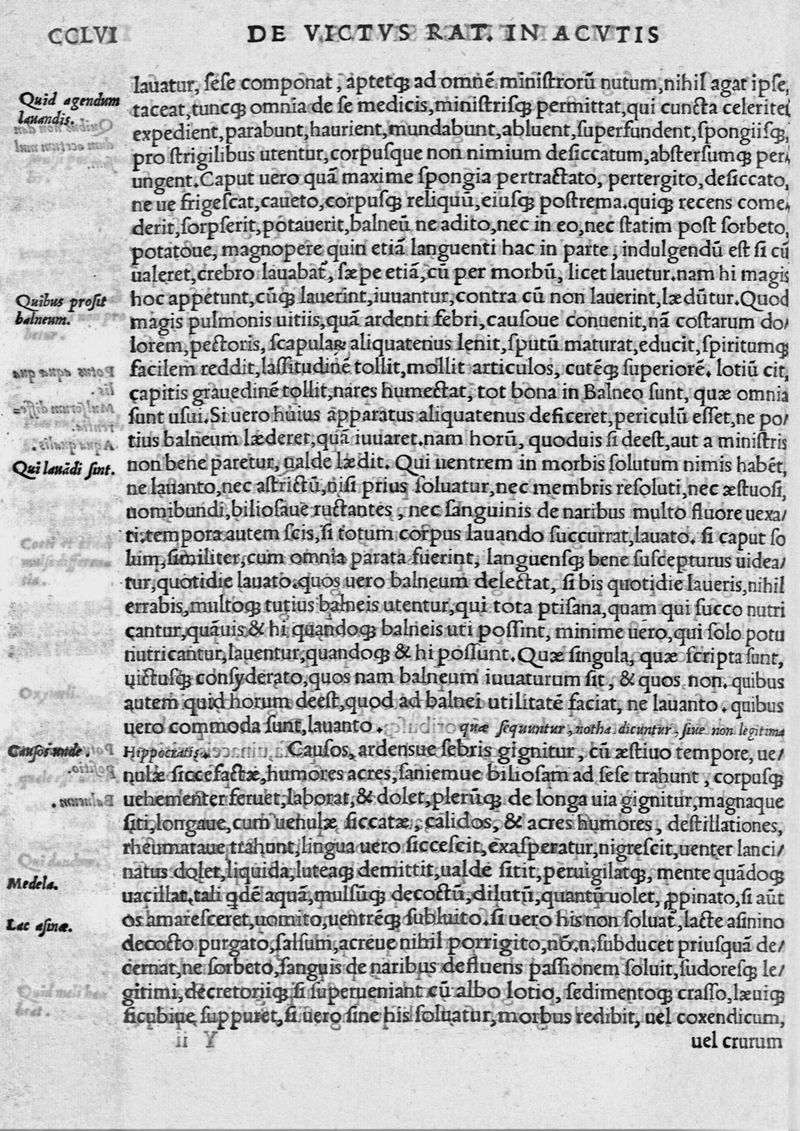 CCLVI DE VICTVS RAT. IN ACVTIS
lauatur, sese componat, aptetq; ad omnē ministrorū nutum, nihil agat ipse,
Quid agendum
lauandis.
taceat, tuncq; omnia de se medicis, ministrisq; permittat, qui cuncta celeritei
expedient, parabunt, haurient, mundabunt, abluent, superfundent, spongiisq;
pro strigilibus utentur, corpusque non nimium desiccatum, abstersumq; per/
ungent. Caput uero quā maxime spongia pertractato, pertergito, desiccato,
ne ue frigescat, caueto, corpusq; reliquū, eiusq; postrema. quiq; recens come/
derit, sorpserit, potauerit, balneū ne adito, nec in eo, nec statim post sorbeto,
potatoue, magnopere quin etiā languenti hac in parte, indulgendū est si cū
ualeret, crebro lauabat, sæpe etiā, cū per morbū, licet lauetur. nam hi magis
Quibus prosit
balneum.
hoc appetunt, cūq; lauerint, iuuantur, contra cū non lauerint, lædūtur. Quod
magis pulmonis uitiis, quā ardenti febri, causoue conuenit, nā costarum do/
lorem, pectoris, scapulæ aliquatenus lenit, sputū maturat, educit, spiritumq;
facilem reddit, lassitudinē tollit, mollit articulos, cutēq; superiorē. lotiū cit,
capitis grauedinē tollit, nares humectat, tot bona in Balneo sunt, quæ omnia
sunt usui. Si uero huius apparatus aliquatenus deficeret, periculū esset, ne po/
tius balneum læderet, quā iuuaret. nam horū, quoduis si deest, aut a ministris
Qui lauādi sint.
non bene paretur, ualde lædit. Qui uentrem in morbis solutum nimis habēt,
ne lauanto, nec astrictū, nisi prius soluatur, nec membris resoluti, nec æstuosi,
uomibundi, biliosaue ructantes, nec sanguinis de naribus multo fluore uexa/
ti. tempora autem scis, si totum corpus lauando succurrat, lauato. si caput so
lum, similiter, cum omnia parata fuerint, languensq; bene suscepturus uidea/
tur, quotidie lauato. quos uero balneum delectat, si bis quotidie laueris, nihil
errabis, multoq; tutius balneis utentur, qui tota ptisana, quam qui succo nutri
cantur, quāuis & hi quandoq; balneis uti possint, minime uero, qui solo potu
nutricantur, lauentur, quandoq; & hi possunt. Quæ singula, quæ scripta sunt,
uictusq; consyderato, quos nam balneum iuuaturum sit, & quos non. quibus
autem quid horum deest, quod ad balnei utilitatē faciat, ne lauanto. quibus
uero commoda sunt, lauanto. quæ sequuntur, notha dicuntur, siue non legitima
Causos unde.
Hippocratis. Causos, ardensue febris gignitur, cū æstiuo tempore, ue/
nulæ siccefactæ, humores acres, saniemue biliosam ad sese trahunt, corpusq;
uehementer feruet, laborat, & dolet, plerūq; de longa uia gignitur, magnaque
siti, longaue, cum uenulæ siccatæ, calidos, & acres humores, destillationes,
rheumataue trahunt, lingua uero siccescit, exasperatur, nigrescit, uenter lanci/
natus dolet, liquida, luteaq; demittit, ualde sitit, peruigilatq;, mente quādoq;
Medela.
uacillat. tali qdē aquā, mulsūq; decoctū, dilutū, quantū uolet, ppinato, si aūt
os amaresceret, uomito, uentrēq; subluito. si uero his non soluat, lacte asinino
Lac asinæ.
decocto purgato, salsum, acreue nihil porrigito, nō. n. subducet priusquā de/
cernat, ne sorbeto, sanguis de naribus defluens passionem soluit, sudoresq; le/
gitimi, decretoriiq; si superueniant cū albo lotio, sedimentoq; crasso, læuiq;
sicubiue suppuret, si uero sine his soluatur, morbus redibit, uel coxendicum,
uel crurum